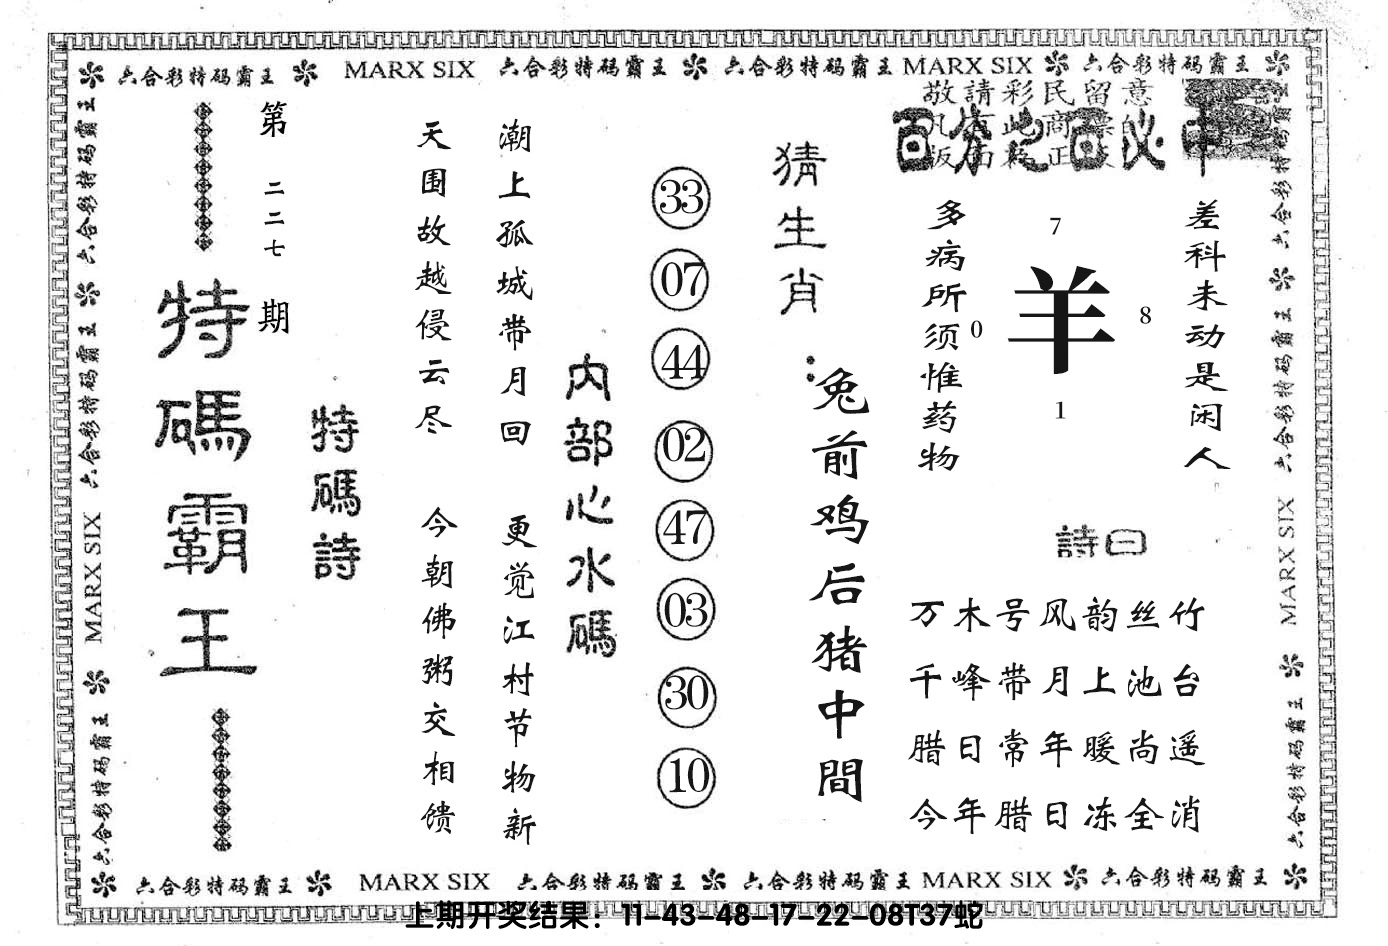 六合彩特码霸王 MARX SIX 六合彩特码霸王 六合彩特码霸王 MARX SIX 六合彩特码霸王
六合彩特码霸王 六合彩特码霸王 MARX SIX 六合彩特码霸王
第二二七期
特碼霸王
特碼詩
天围故越侵云尽 今朝佛粥交相馈
潮上孤城带月回 更觉江村节物新
内部心水碼
33
07
44
02
47
03
30
10
猜生肖：
兔前鸡后猪中間
敬請彩民留意
百分之百必中
多病所须惟药物
7
0
羊
8
1
差科未动是闲人
詩曰
万木号风韵丝竹
千峰带月上池台
腊日常年暖尚遥
今年腊日冻全消
六合彩特码霸王 六合彩特码霸王 MARX SIX 六合彩特码霸王
六合彩特码霸王 MARX SIX 六合彩特码霸王 六合彩特码霸王 MARX SIX 六合彩特码霸王
上期开奖结果：11-43-48-17-22-08T37蛇